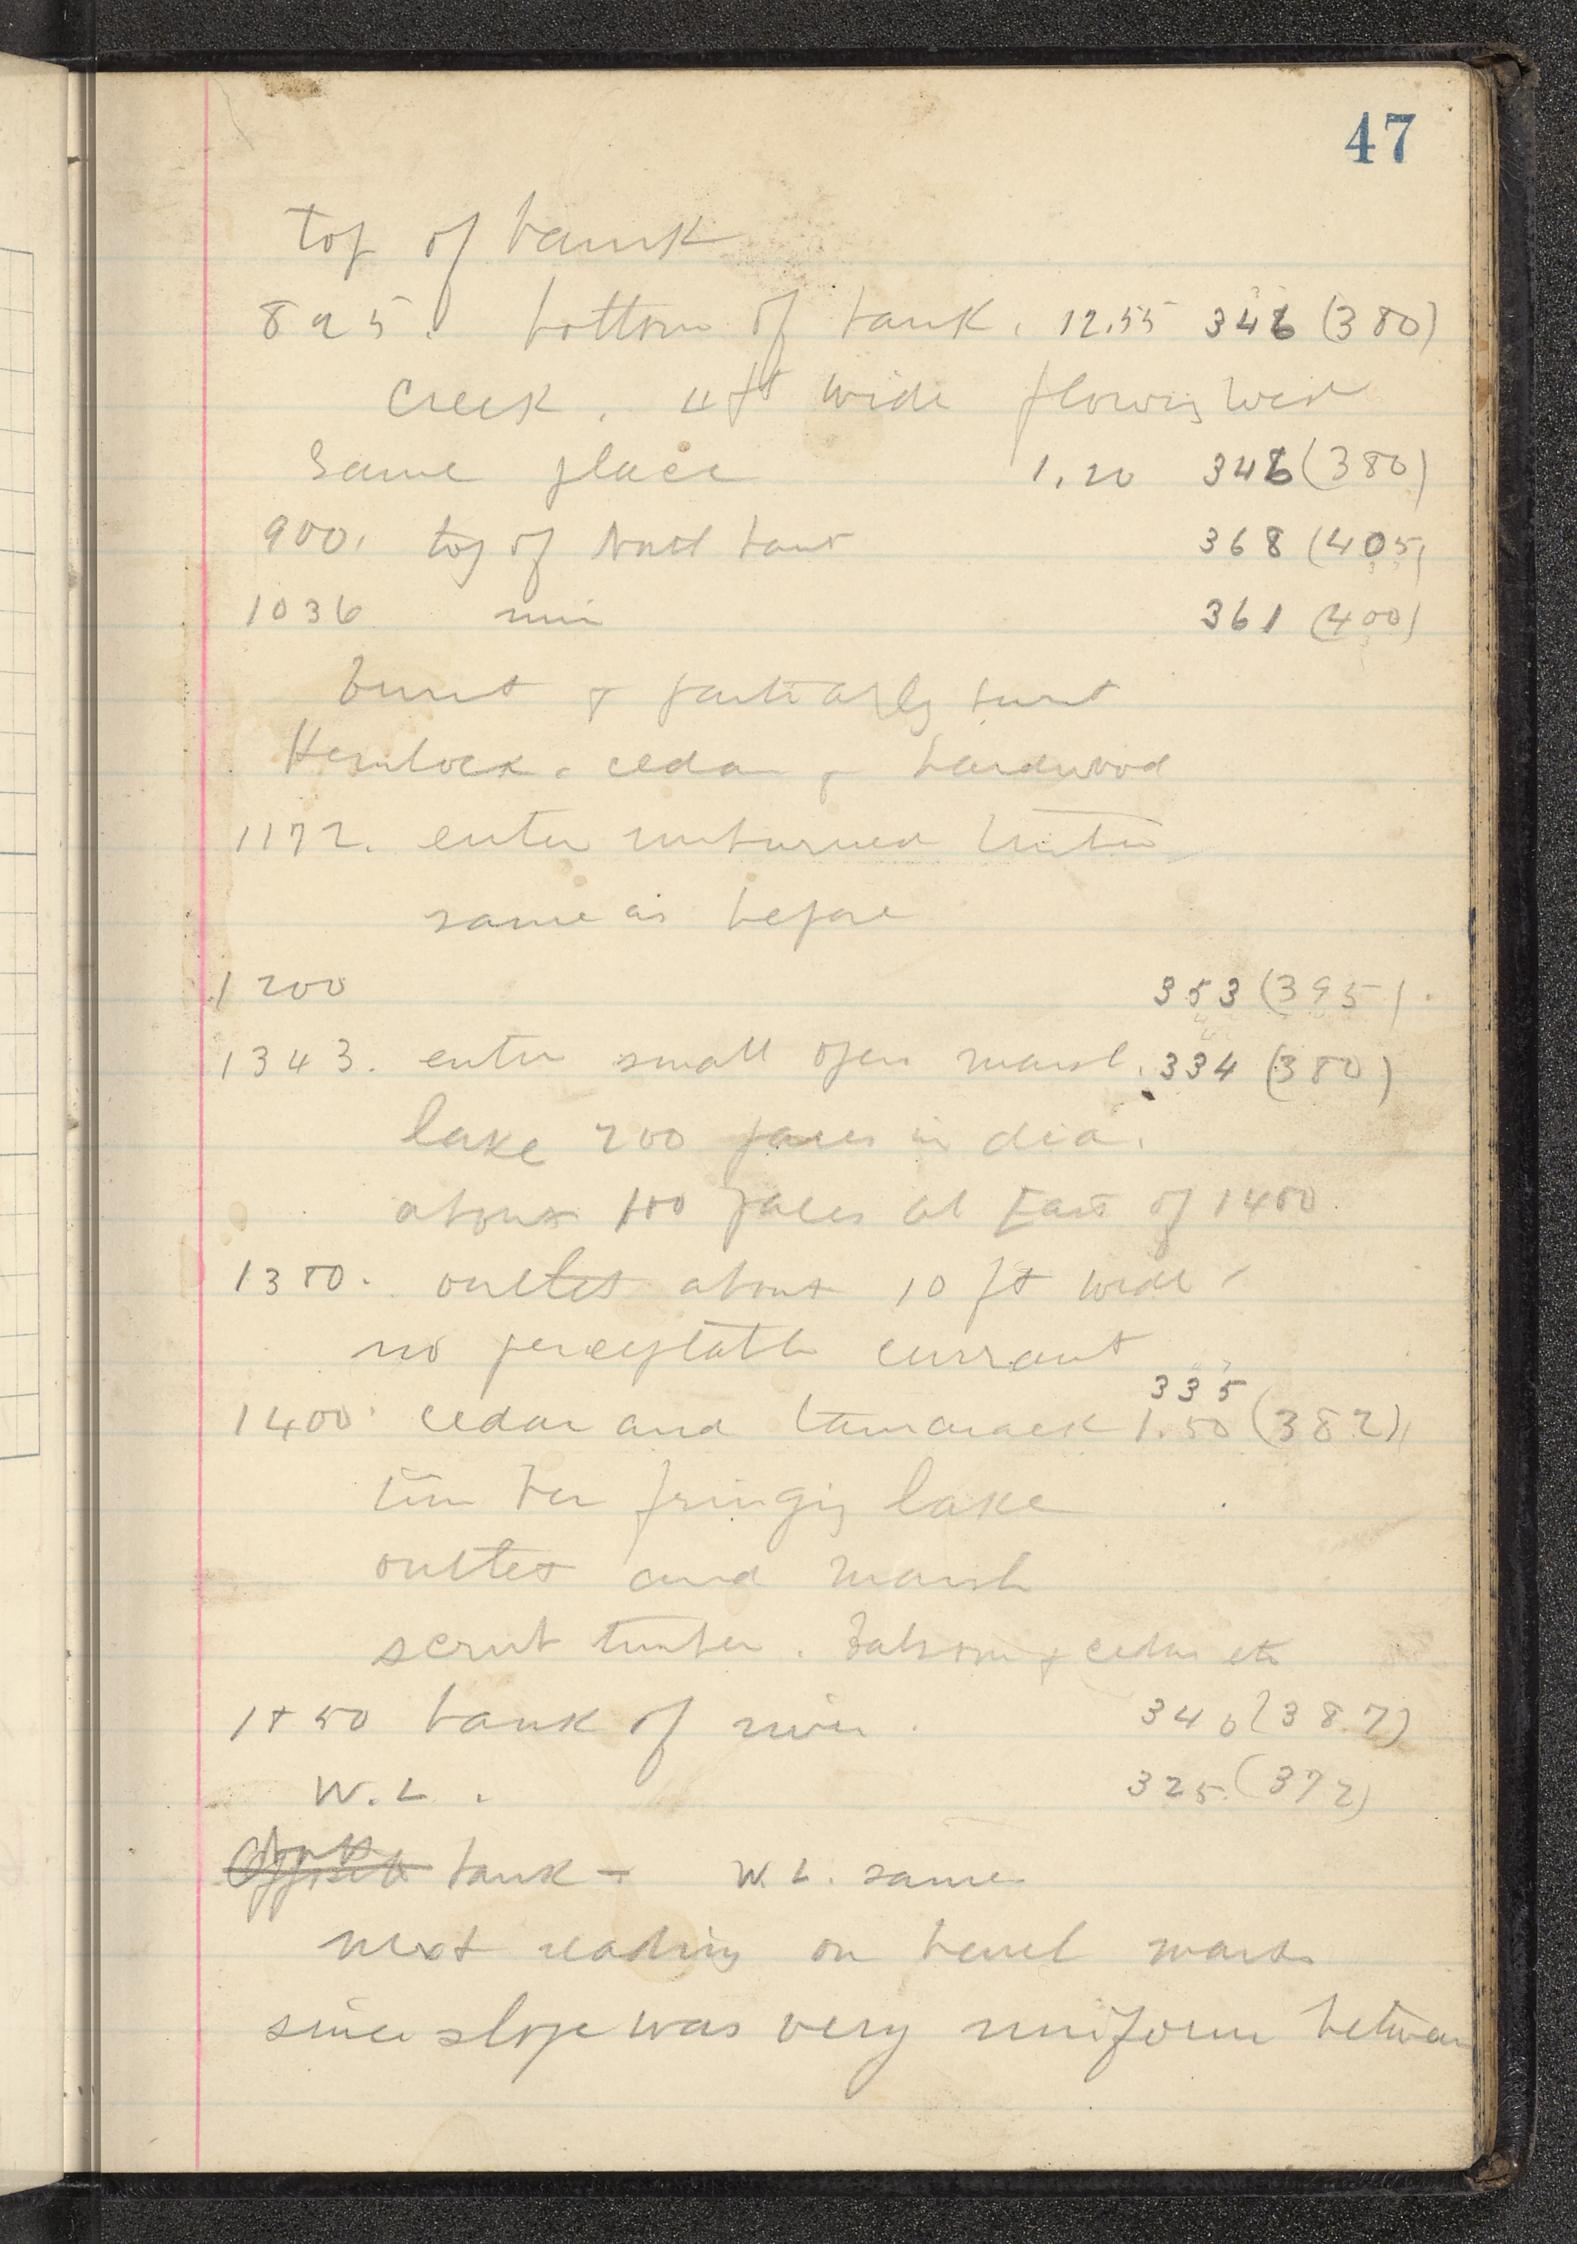 47
top of bank
825. bottom of bank. 12.55 346 (380)
Creek. 4 ft wide flowing West
Same place 1.20 346 (380)
900. top of North bank 368 (405)
1036 361 (400)
burnt & partially burnt
Hemlock. cedar & hardwood
1172. enter unburned timber
same as before
1200 353 (395).
1343. enter small open marsh. 334 (380)
lake 200 paces in dia.
about 100 paces at East of 1400
1380. outlet about 10 ft wide
no perceptable currant
335
1400. cedar and tamarack 1.50 (382)
timber fringing lake
outlet and marsh
scrub timber. balsom & cedar etc
1850 bank of river. 340 (387)
W.L. 325 (372)
bank - W.L. same
next reading on bench mark
since slope was very uniform between